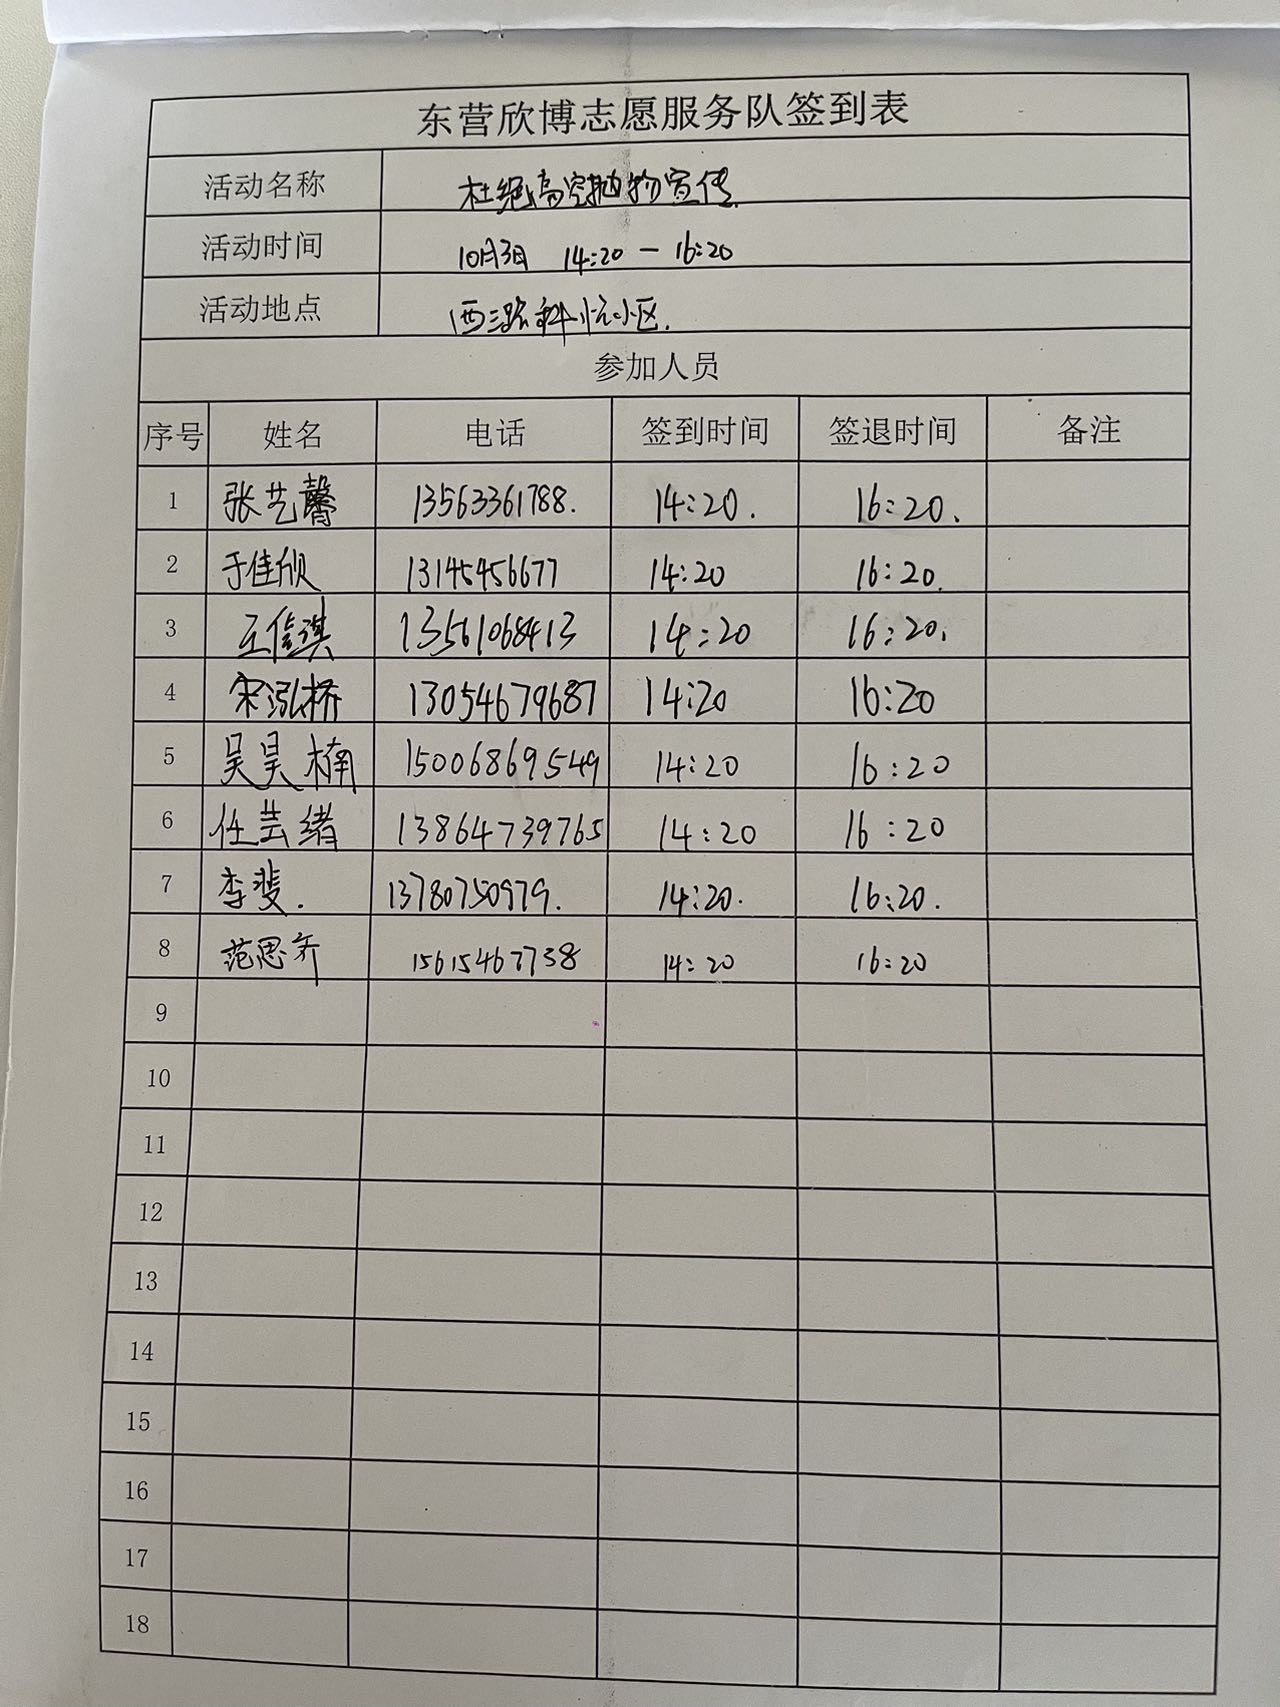 东营欣博志愿服务队签到表
活动名称 杜绝高空抛物宣传
活动时间 10月3日 14:20-16:20
活动地点 西三路科忱小区.
参加人员
序号 姓名 电话 签到时间 签退时间 备注
1 张艺馨 13563361788. 14:20. 16:20.
2 于佳欣 13145456677 14:20 16:20.
3 王信淇 13561068413 14:20 16:20.
4 宋泓桥 13054679687 14:20 16:20
5 吴昊楠 15006869549 14:20 16:20
6 任芸绪 13864739765 14:20 16:20
7 李斐. 13780750979. 14:20. 16:20.
8 范思齐 15615467738 14:20 16:20
9
10
11
12
13
14
15
16
17
18